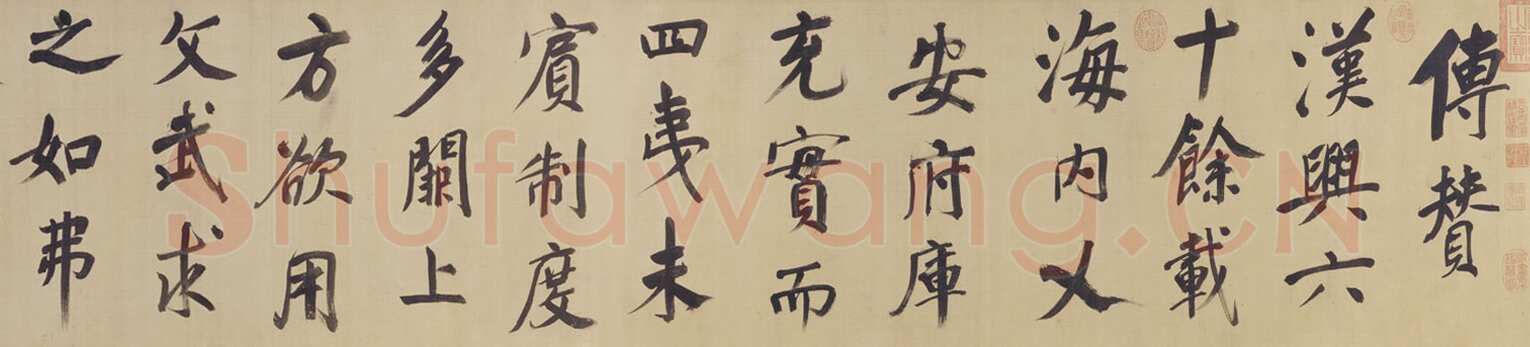 傳贊
漢興六
十餘載
海內乂
安府庫
充實而
四夷未
賓制度
多闕上
方欲用
文武求
之如弗
Shufawang.CN